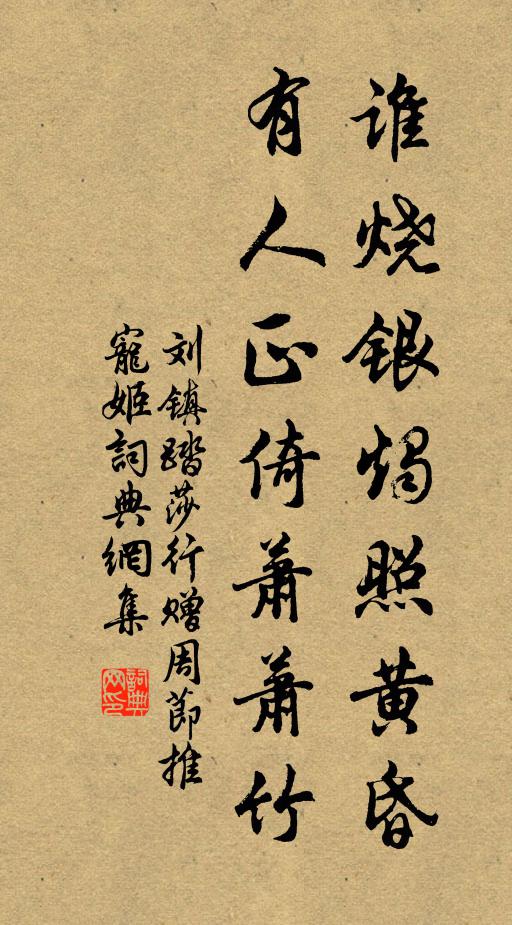 谁烧银烛照黄昏
有人正倚萧萧竹
刘镇踏莎行赠周节推
寵姬詞典網集
詞典
网印